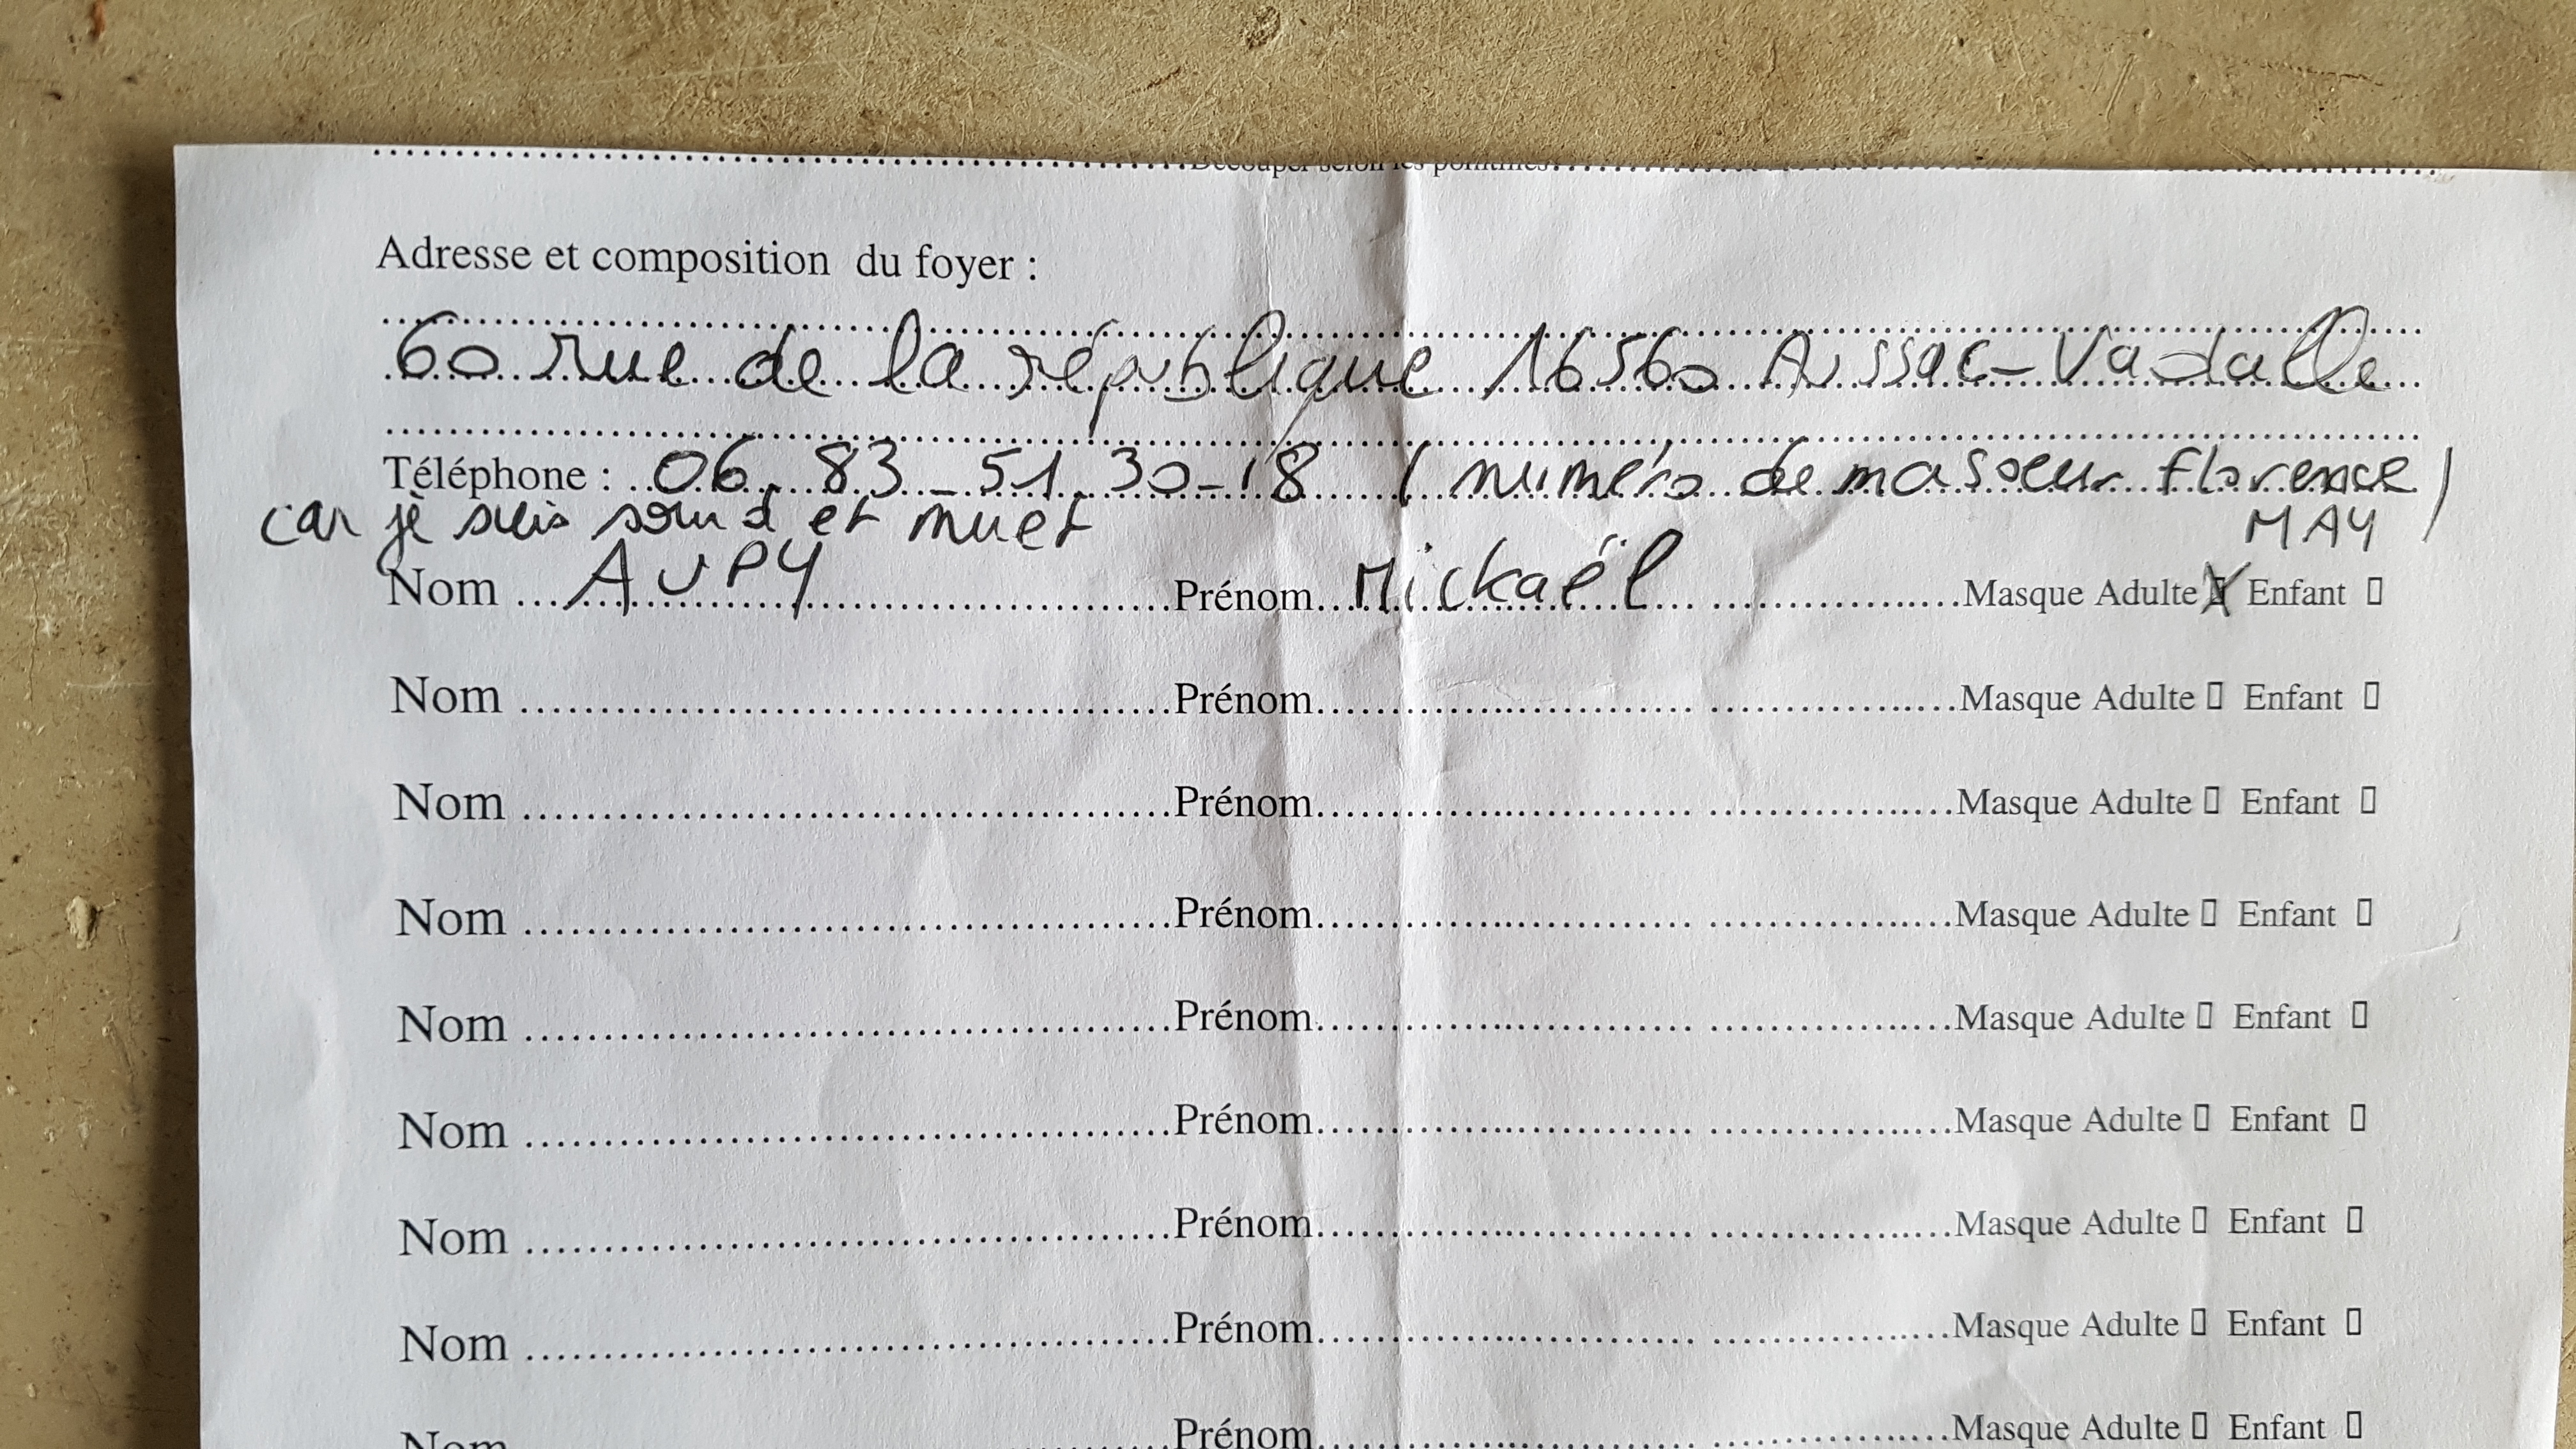 Découper selon les pointillés
Adresse et composition du foyer :
60 rue de la république 16560 Aussac-Vadalle
Téléphone : 06_83_51_30-18 (numéro de ma soeur florence
MAY)
car je suis sourd et muet
Nom AUPY Prénom Mickaël Masque Adulte X Enfant ▯
Nom Prénom Masque Adulte ▯ Enfant ▯
Nom Prénom Masque Adulte ▯ Enfant ▯
Nom Prénom Masque Adulte ▯ Enfant ▯
Nom Prénom Masque Adulte ▯ Enfant ▯
Nom Prénom Masque Adulte ▯ Enfant ▯
Nom Prénom Masque Adulte ▯ Enfant ▯
Nom Prénom Masque Adulte ▯ Enfant ▯
Nom Prénom Masque Adulte ▯ Enfant ▯